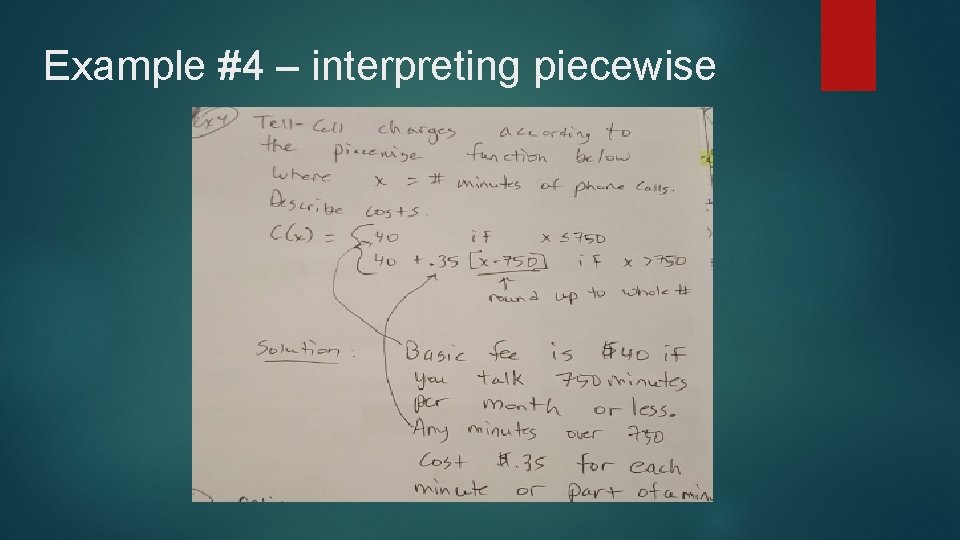 Example #4 – interpreting piecewise
Ex4) Tell-Cell charges according to
the piecewise function below
Where x = # minutes of phone calls.
Describe costs.
C(x) = { 40 if x ≤ 750
40 + .35 [x-750] if x > 750
round up to whole #
Solution: Basic fee is $40 if
you talk 750 minutes
per month or less.
Any minutes over 750
cost $.35 for each
minute or part of a min